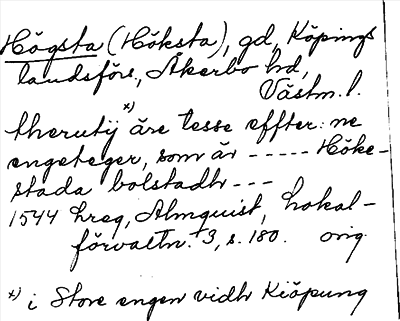 Högsta (Höksta), gd, Köpings
landsförs., Åkerbo hd,
Västm. l.
theruty x) äre tesse effter: ne
engeteger, som är ----- Höke-
stada bolstadh ---
1544 hreg, Almquist, Lokal-
förvaltn. 3, s. 180. orig.
x) i Store engen vidh Kiöpung